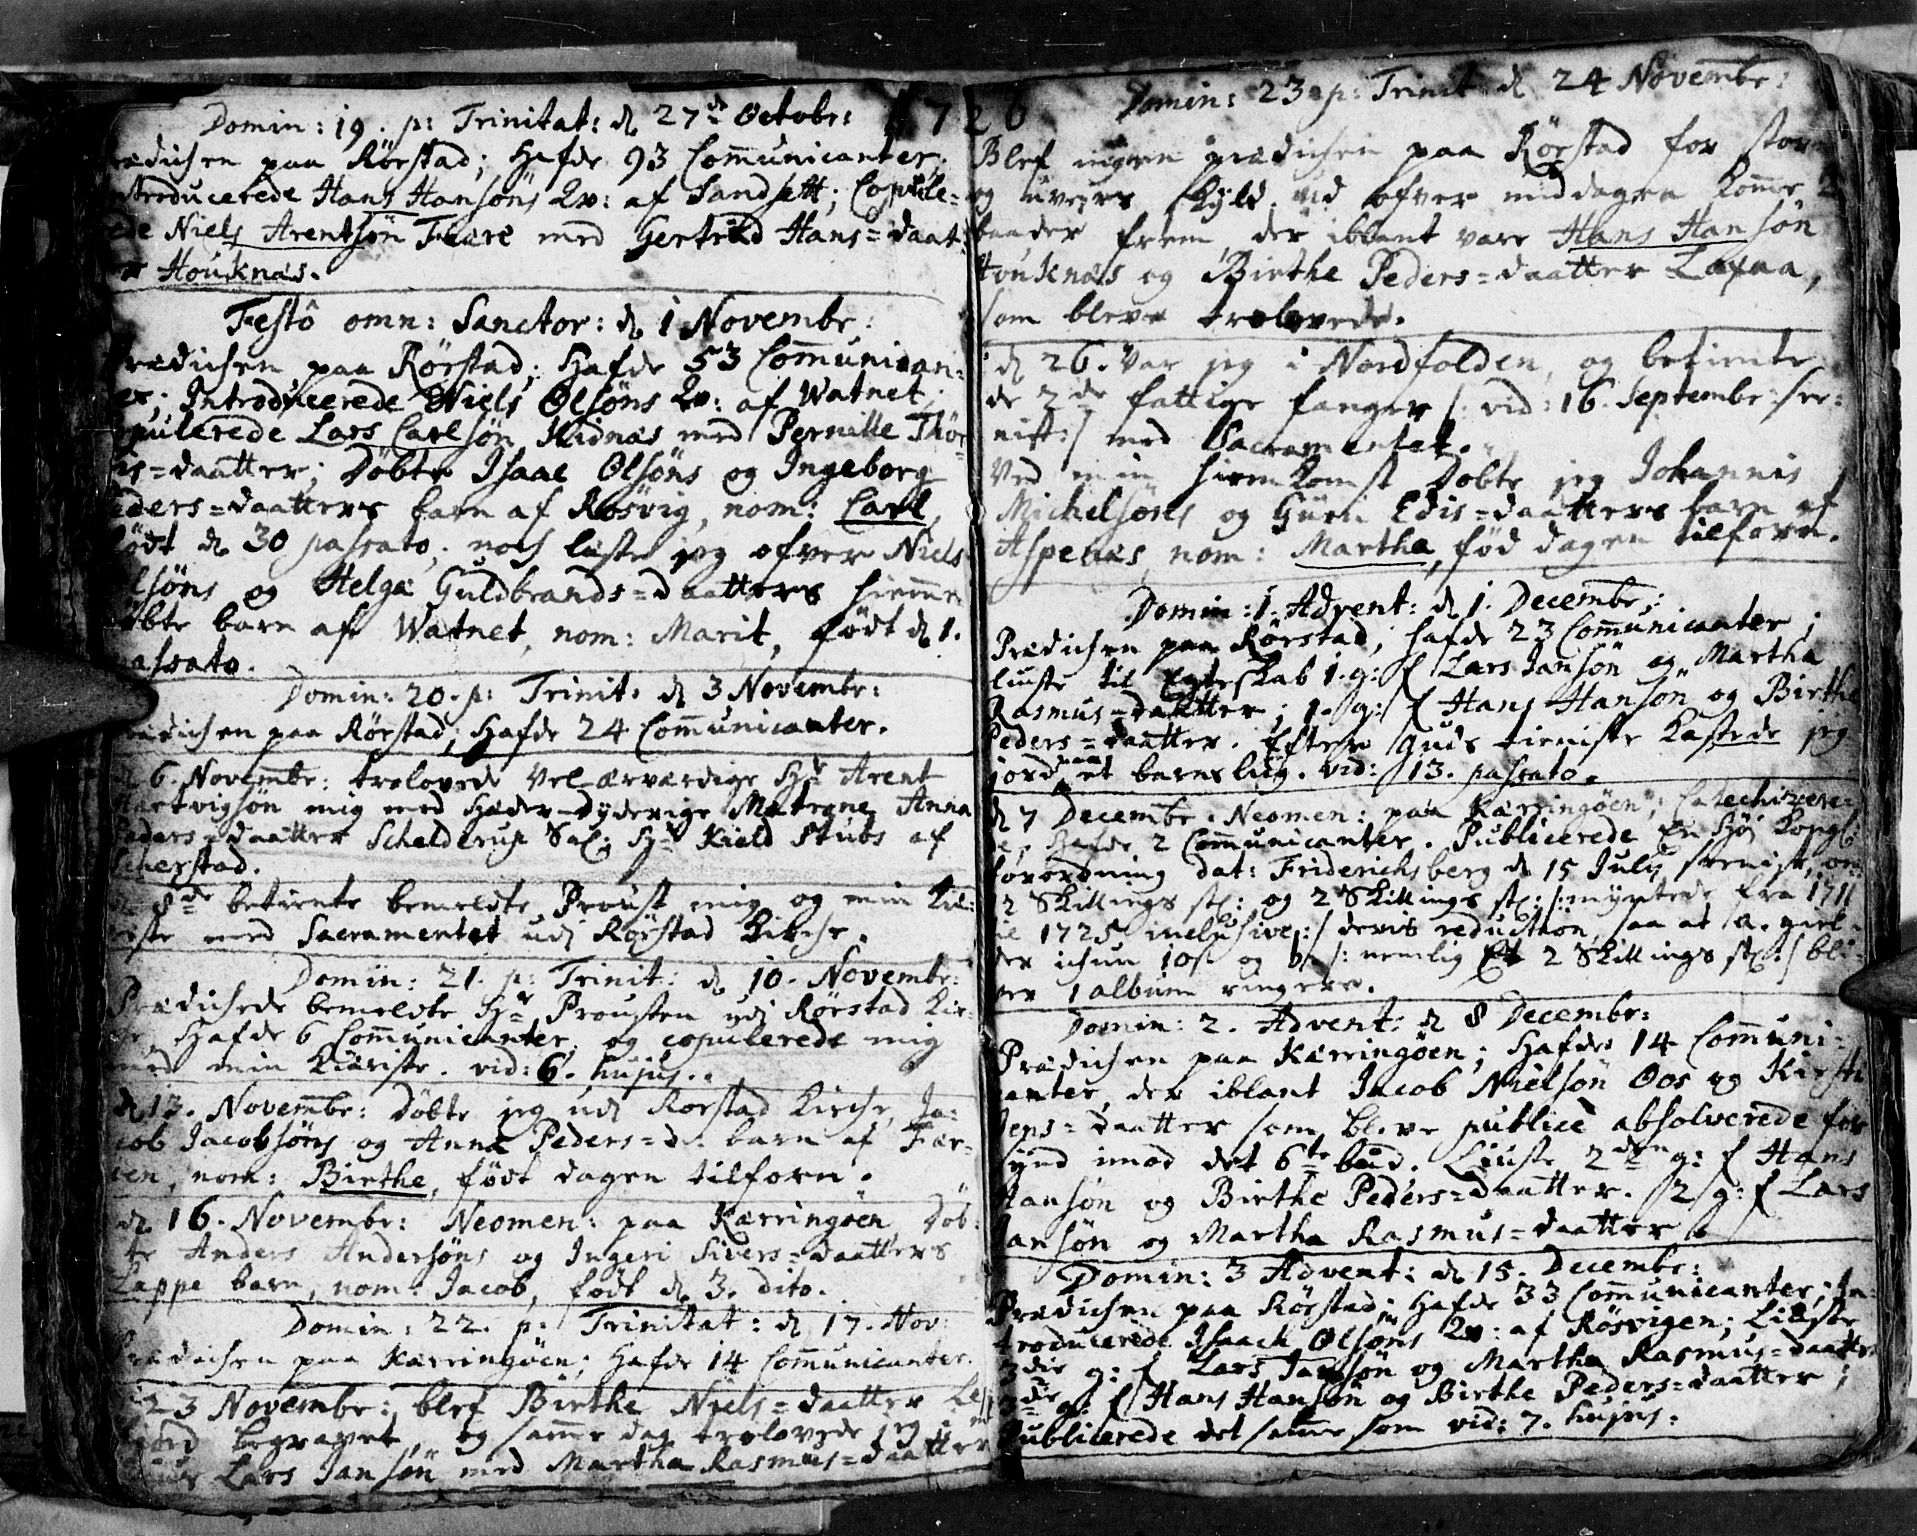 1726
Domin: 19. p: Trinitat: d. 27de Octobr:
rædichen paa Rörstad; Hafde 93 Communicanter;
ntroducerede Hans Hansøns Qv: af Sandsett; Copule=
rede Niels Arentsøn Fære med Gertrud Hans=daat=
er Houknæs.
Festô omn: Sanctor: d. 1 Novembr:
Prædichen paa Rörstad; Hafde 53 Communican=
ter; Introducerede Niels Olsøns Qv: af Watnet;
opulerede Lars Carlsøn Kidnæs med Pernille Thör=
is=daatter; Döbte Isaac Olsøns og Ingeborg
Peders=daatters barn af Røsvig, nom: Carl,
född d. 30 passato; noch læste jeg ofver Niels
Olsøns og Helga Guldbrands=daatters hiemme
döbte barn af Watnet, nom: Marit, födt d. 1.
passato.
Domin: 20. p: Trinit: d. 3 Novembr:
Prædichen paa Rörstad; Hafde 24 Communicanter.
d. 6. Novembr: trolovede Vel-ærværdige Hr Arent
Hartvigsøn mig med Hæder-Dyderige Matrone Anna
Peders=daatter Schelderup Sal: Hr Kield Stubs af
Scherstad.
d. 8de betiente bemeldte Proust mig og min Kiæ=
riste med Sacramentet udj Rörstad Kirche.
Domin: 21. p: Trinit: d. 10. Novembr:
Prædichede bemeldte Hr Prousten udj Rörstad Kir=
che, Hafde 6 Communicanter, og copulerede mig
med min Kiæriste. vid: 6. hujus.
d. 13. Novembr: Döbte jeg udj Rörstad Kirche, Ja=
cob Jacobsøns og Anna Peders=d: barn af Fær=
øen, nom: Birthe, födt dagen tilforn.
d. 16. Novembr: Neomen: paa Kærringöen, Döb=
te Anders Andersøns og Ingeri Sivers=daatters
Lappe barn, nom: Jacob, födt d. 3. dito.
Domin: 22. p: Trinitat: d. 17. Nov:
Prædichen paa Kærringöen; Hafde 14 Communicanter.
d. 23 Novembr: blef Birthe Niels=daatter
begravet, og samme dag trolovede jeg i mit
Huus Lars Jansøn med Martha Rasmus=daatter
Domin: 23 p: Trinit d. 24 Novembr:
Blef ingen prædichen paa Rörstad for storm
og uveyrs skyld. Ud ofver middagen komme 2
baader frem, der iblant vare Hans Hansøn
Houknæs og Birthe Peders=daatter Laxaa,
som bleve trolovede.
d. 26. Var jeg i Nordfolden, og betiente
de 2de fattige fanger /: vid: 16. Septembr: ser=
nist:/ med Sacramentet.
Ved min hiemkomst Döbte jeg Johannis
Michelsøns og Guri Edis=daatters barn af
Aspenæs, nom: Martha, föd dagen tilforn.
Domin: 1. Advent: d. 1. Decembr:
Prædichen paa Rörstad; hafde 23 Communicanter;
liuste til Egteskab 1. g: f Lars Jansøn og Martha
Rasmus=daatter; 1. g: f Hans Hansøn og Birthe
Peders=daatter. Efter Guds tieniste kastede jeg
jord paa et barns liig. vid: 13. passato.
d. 7 Decembr. Neomen: paa Kærringöen; Catechizere=
de, Hafde 2 Communicanter. Publicerede En Höj Kongl:
forordning dat: Friderichsberg d. 15 July om
12 Skillings st: og 2 Skillings st: /: myntede fra 1711
til 1725 inclusive:/ deris reduction, saa at
10 s og /: nemlig Et 2 Skillings st:/ bli=
ver 1 album ringere.
Domin: 2. Advent: d. 8 Decembr:
Prædichen paa Kærringöen; Hafde 14 Communi=
canter, der iblant Jacob Nielsøn Oos og Kirsti
Jens=daatter som bleve publicè absolverede for
synd imod det 6te bud. Liuste 2den g: f Hans
Hansøn og Birthe Peders=daatter. 2 g: f Lars
Jansøn og Martha Rasmus=daatter.
Domin: 3 Advent: d. 15. Decembr:
Prædichen paa Rörstad; Hafde 33 Communicanter; In=
troducerede Isaach Olsøns Qv: af Røsvigen; Liuste
3die g: f Lars Jansøn og Martha Rasmus=daatter
3die g: f Hans Hansøn og Birthe Peders=daatter;
Publicerede det samme som vid: 7. hujus.